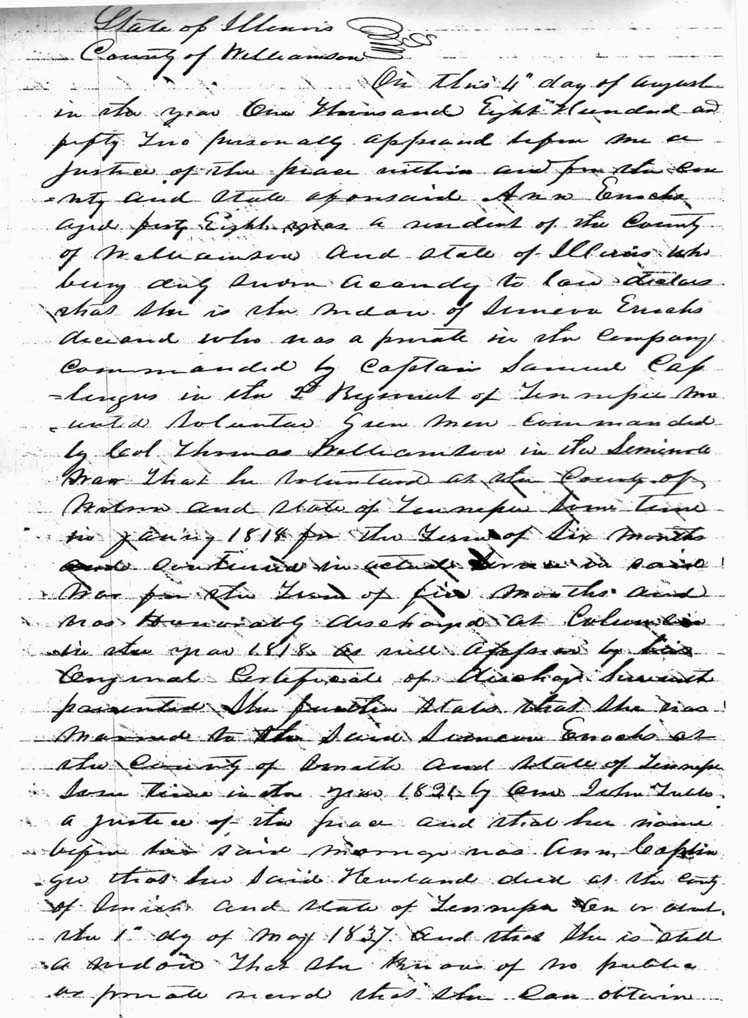 State of Illinois
County of Williamson
On this 4" day of August
in the year One Thousand Eight Hundred and
fifty Two personally appeared before me a
Justice of the peace within and for the cou
=nty and State aforesaid Ann Enochs
aged forty Eight years a resident of the County
of Williamson and State of Illinois who
being duly sworn according to law declares
that she is the widow of Simeon Enochs
deceased who was a private in the Company
Commanded by Captain Samuel Cap
=linger in the 2d Regiment of Tennessee Mo
=unted Volunteer Gun Men Commanded
by Col Thomas Williamson in the Seminole
War That he Volunteered at the County of
Wilson and State of Tennessee some time
in January 1818 for the Term of Six Months
and continued in actual service in said
War for the Term of five Months and
was Honorably discharged at Columbia
in the year 1818 as will appear by his
Original Certificate of discharge herewith
presented She further States that she was
Married to the Said Simeon Enochs at
the County of Smith and State of Tennessee
some time in the year 1821 by One John
a Justice of the peace and that her name
before her said marriage was Ann Caplin
ger that her Said Husband died at the County
of Smith and State of Tennessee On or about
the 1st day of May 1837 and that she is still
a widow That she Knows of no public
or private record that she can obtain